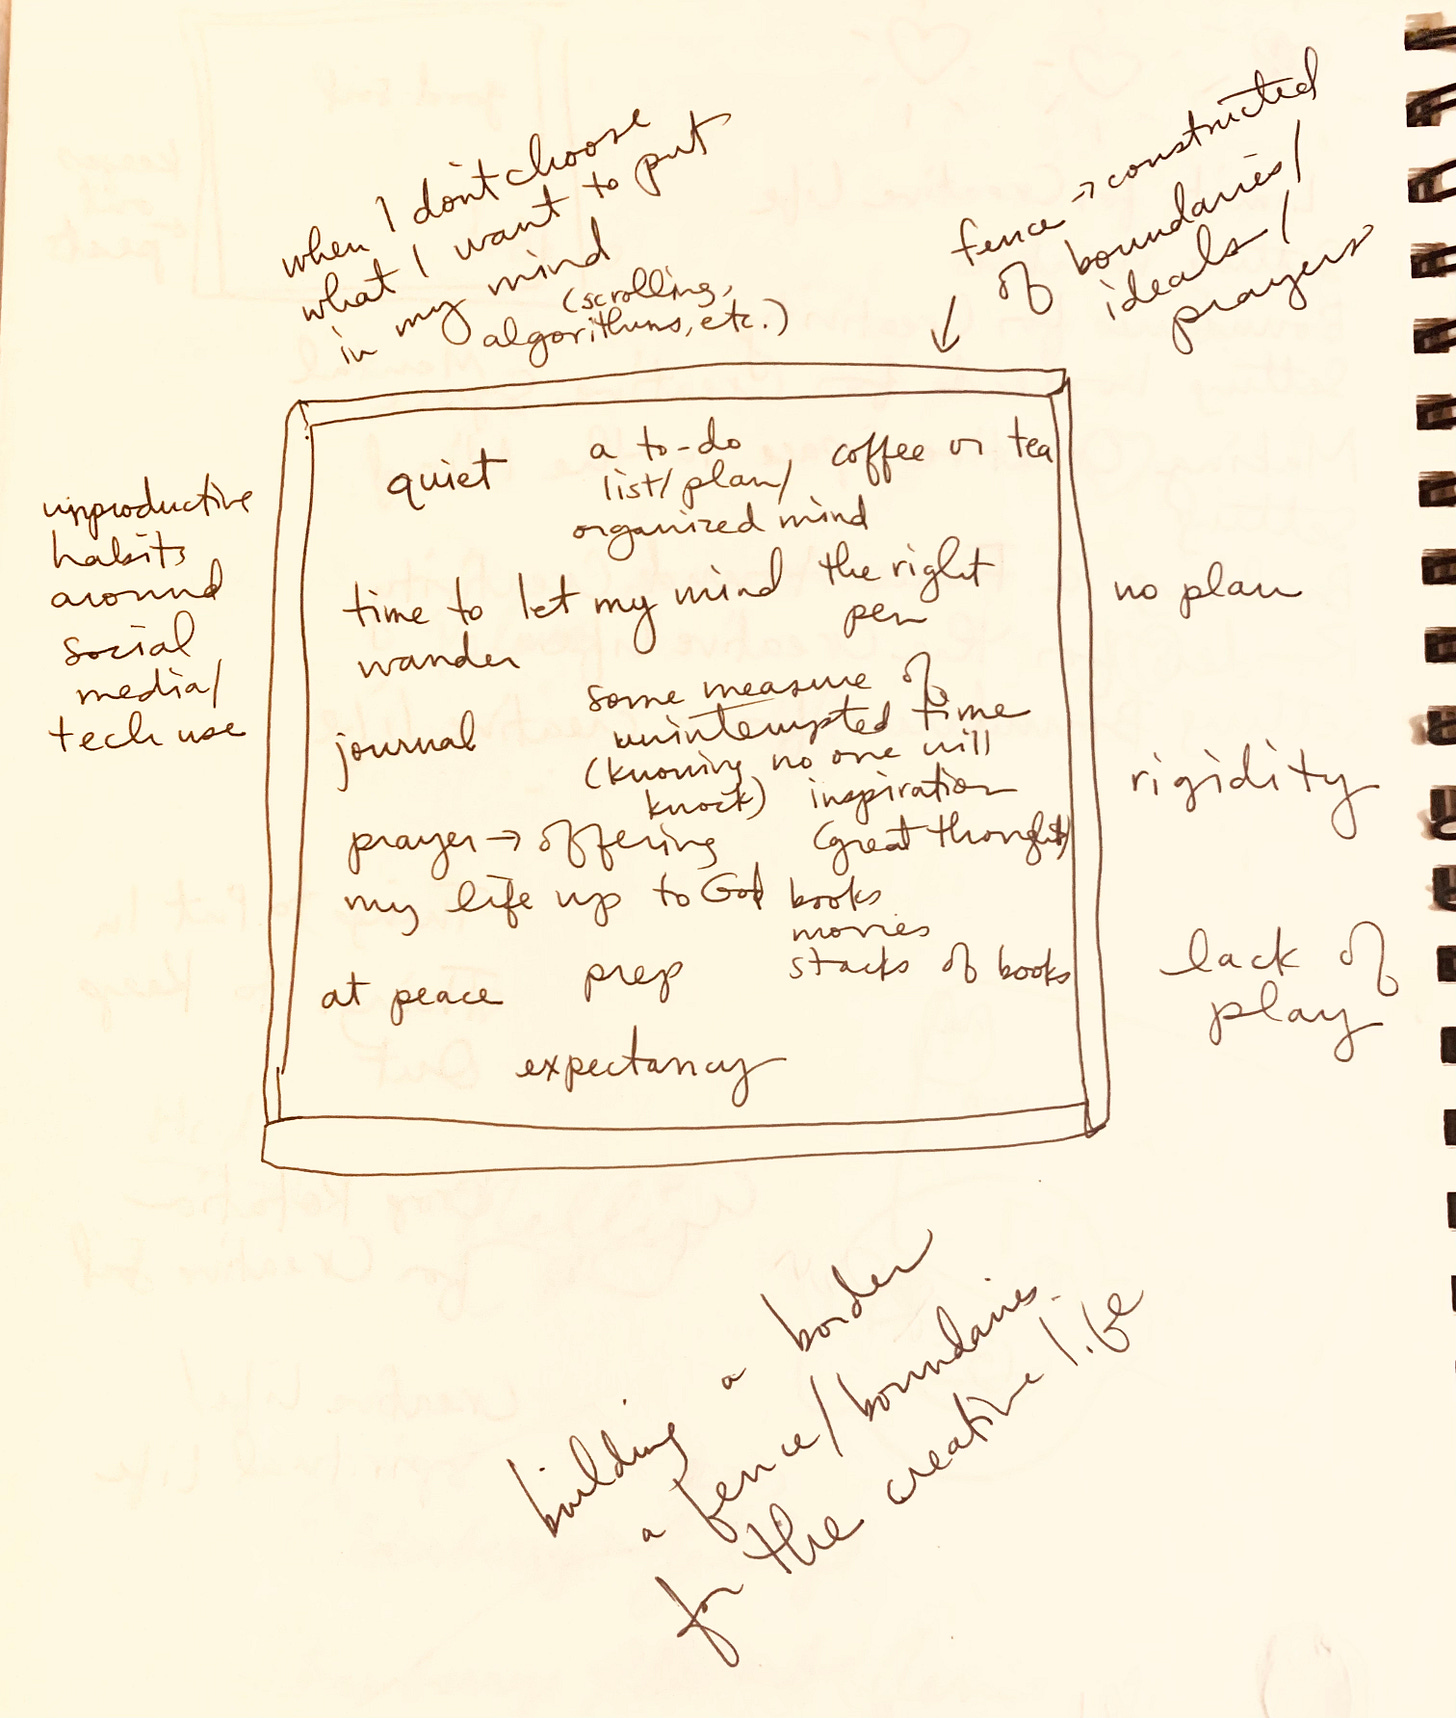 when I don't choose
what I want to put
in my mind
(scrolling,
algorithms, etc.)
fence → constructed
of boundaries/
ideals/
prayers
unproductive
habits
around
social
media/
tech use
quiet
a to-do
list/plan/
organized mind
coffee or tea
time to let my mind
wander
the right
pen
journal
some measure of
uninterrupted time
(knowing no one will
knock)
inspiration
(great thoughts)
prayer → offering
my life up to God
books
movies
stacks of books
at peace
prep
expectancy
no plan
rigidity
lack of
play
building a border
a fence/boundaries
for the creative life